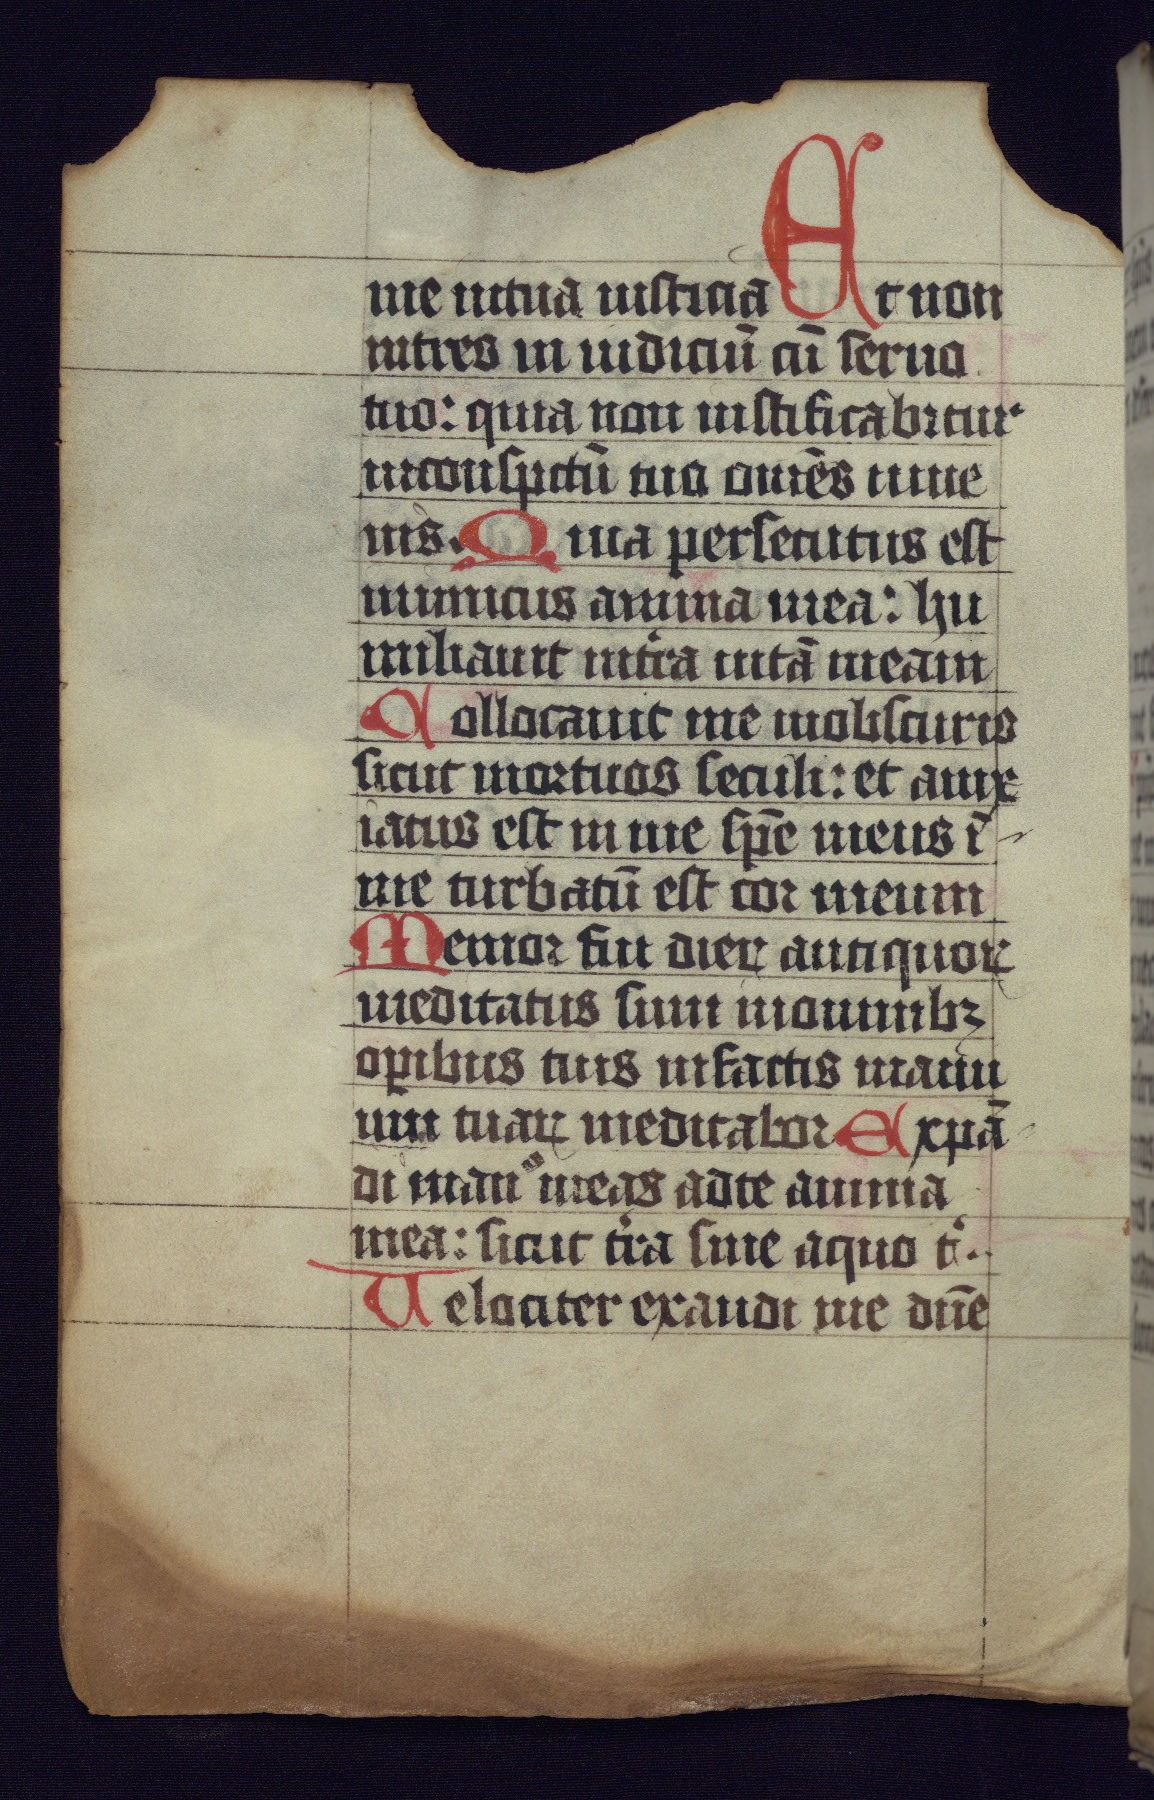 me intua iusticia Et non
intres in iudiciū cū seruo
tuo: quia non iustificabitur
inconspctū tuo omēs uiue
nis. Quia persecutus est
inimicus anima mea: hu
miliauit intra uitā meam
Collocauit me inobscuris
sicut mortuos seculi: et anx
iatus est in me spē meus ī
me turbatū est cor meum
Memor fui dieꝝ antiquoꝝ
meditatus sum inomnibꝫ
opibus tuis infactis manu
um tuaꝝ meditabor Expā
di man⁹ meas adte anima
mea: sicut tra sine aquo t.
Uelociter exaudi me dn̄e